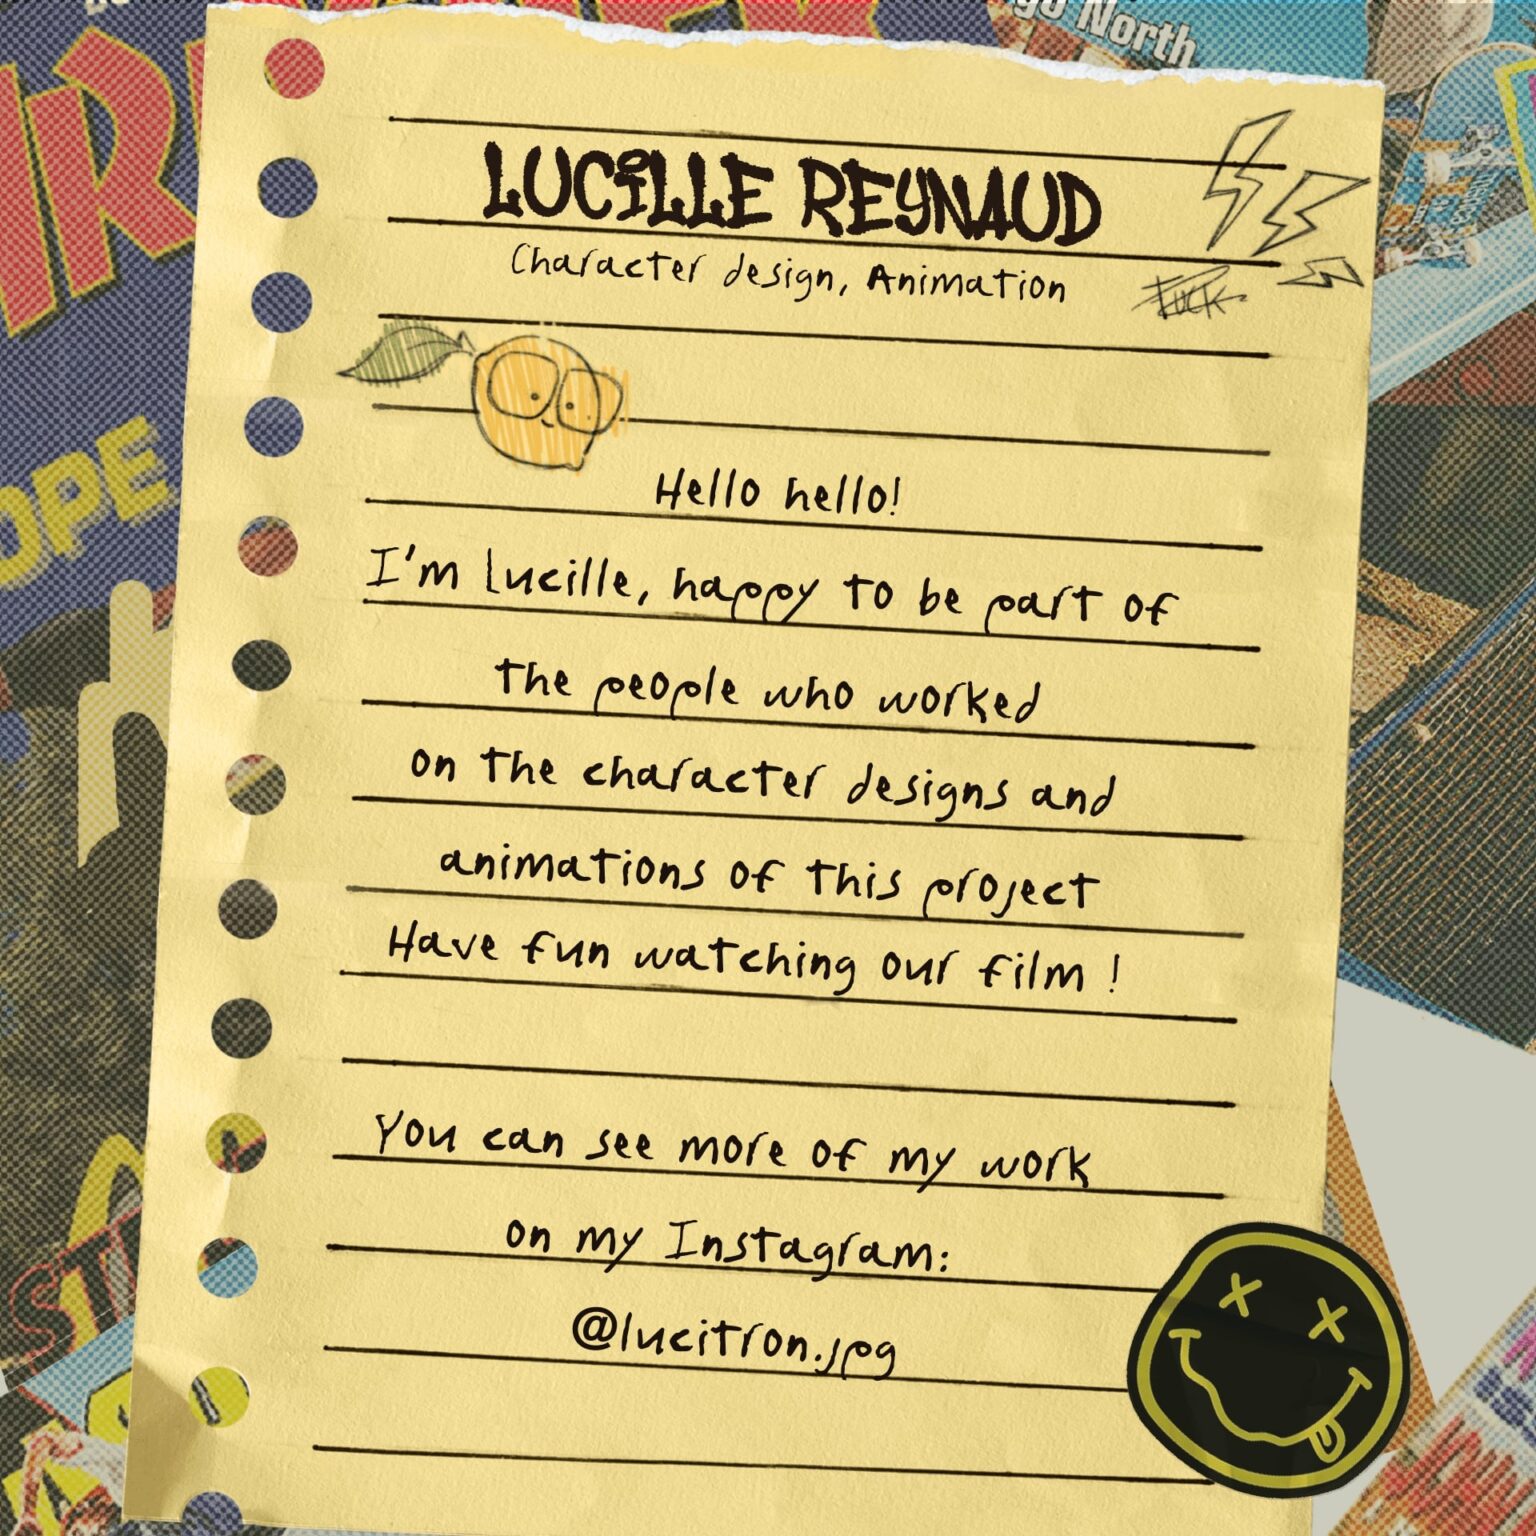 go North
LUCILLE REYNAUD
Character design, Animation
FUCK
OPE
Hello hello!
I'm Lucille, happy to be part of
the people who worked
on the character designs and
animations of this project
Have fun watching our film !
You can see more of my work
on my Instagram:
@lucitron.jpg